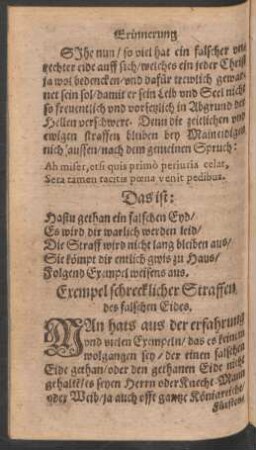 Erinnerung
SIhe nun / so viel hat ein falscher vnd
rechter eide auff sich / welches ein jeder Christ
ja wol bedencken / vnd dafür trewlich gewar-
net sein sol / damit er sein Leib vnd Seel nicht
so freuentlich vnd vorsetzlich in Abgrund der
Hellen verschwere. Denn die zeitlichen vnd
ewigen straffen bleiben bey Maineidigen
nich aussen / nach dem gemeinen Spruch:
Ah miser, etsi quis primò periuria celat,
Sera tamen tacitis pœna venit pedibus.
Das ist:
Hastu gethan ein falschen Eyd /
Es wird dir warlich werden leid /
Die Straff wird nicht lang bleiben aus /
Sie kömpt dir entlich gwis zu Haus /
Folgend Exempel weisens aus.
Exempel schrecklicher Straffen
des falschen Eides.
MAn hats aus der erfahrung
vnd vielen Exempeln / das es keinem
wolgangen sey / der einen falschen
Eide gethan / oder den gethanen Eide nicht
gehalten / es seyen Herrn oder Knecht / Mann
oder Weib / ja auch offt gantze Königreiche /
Fürsten-